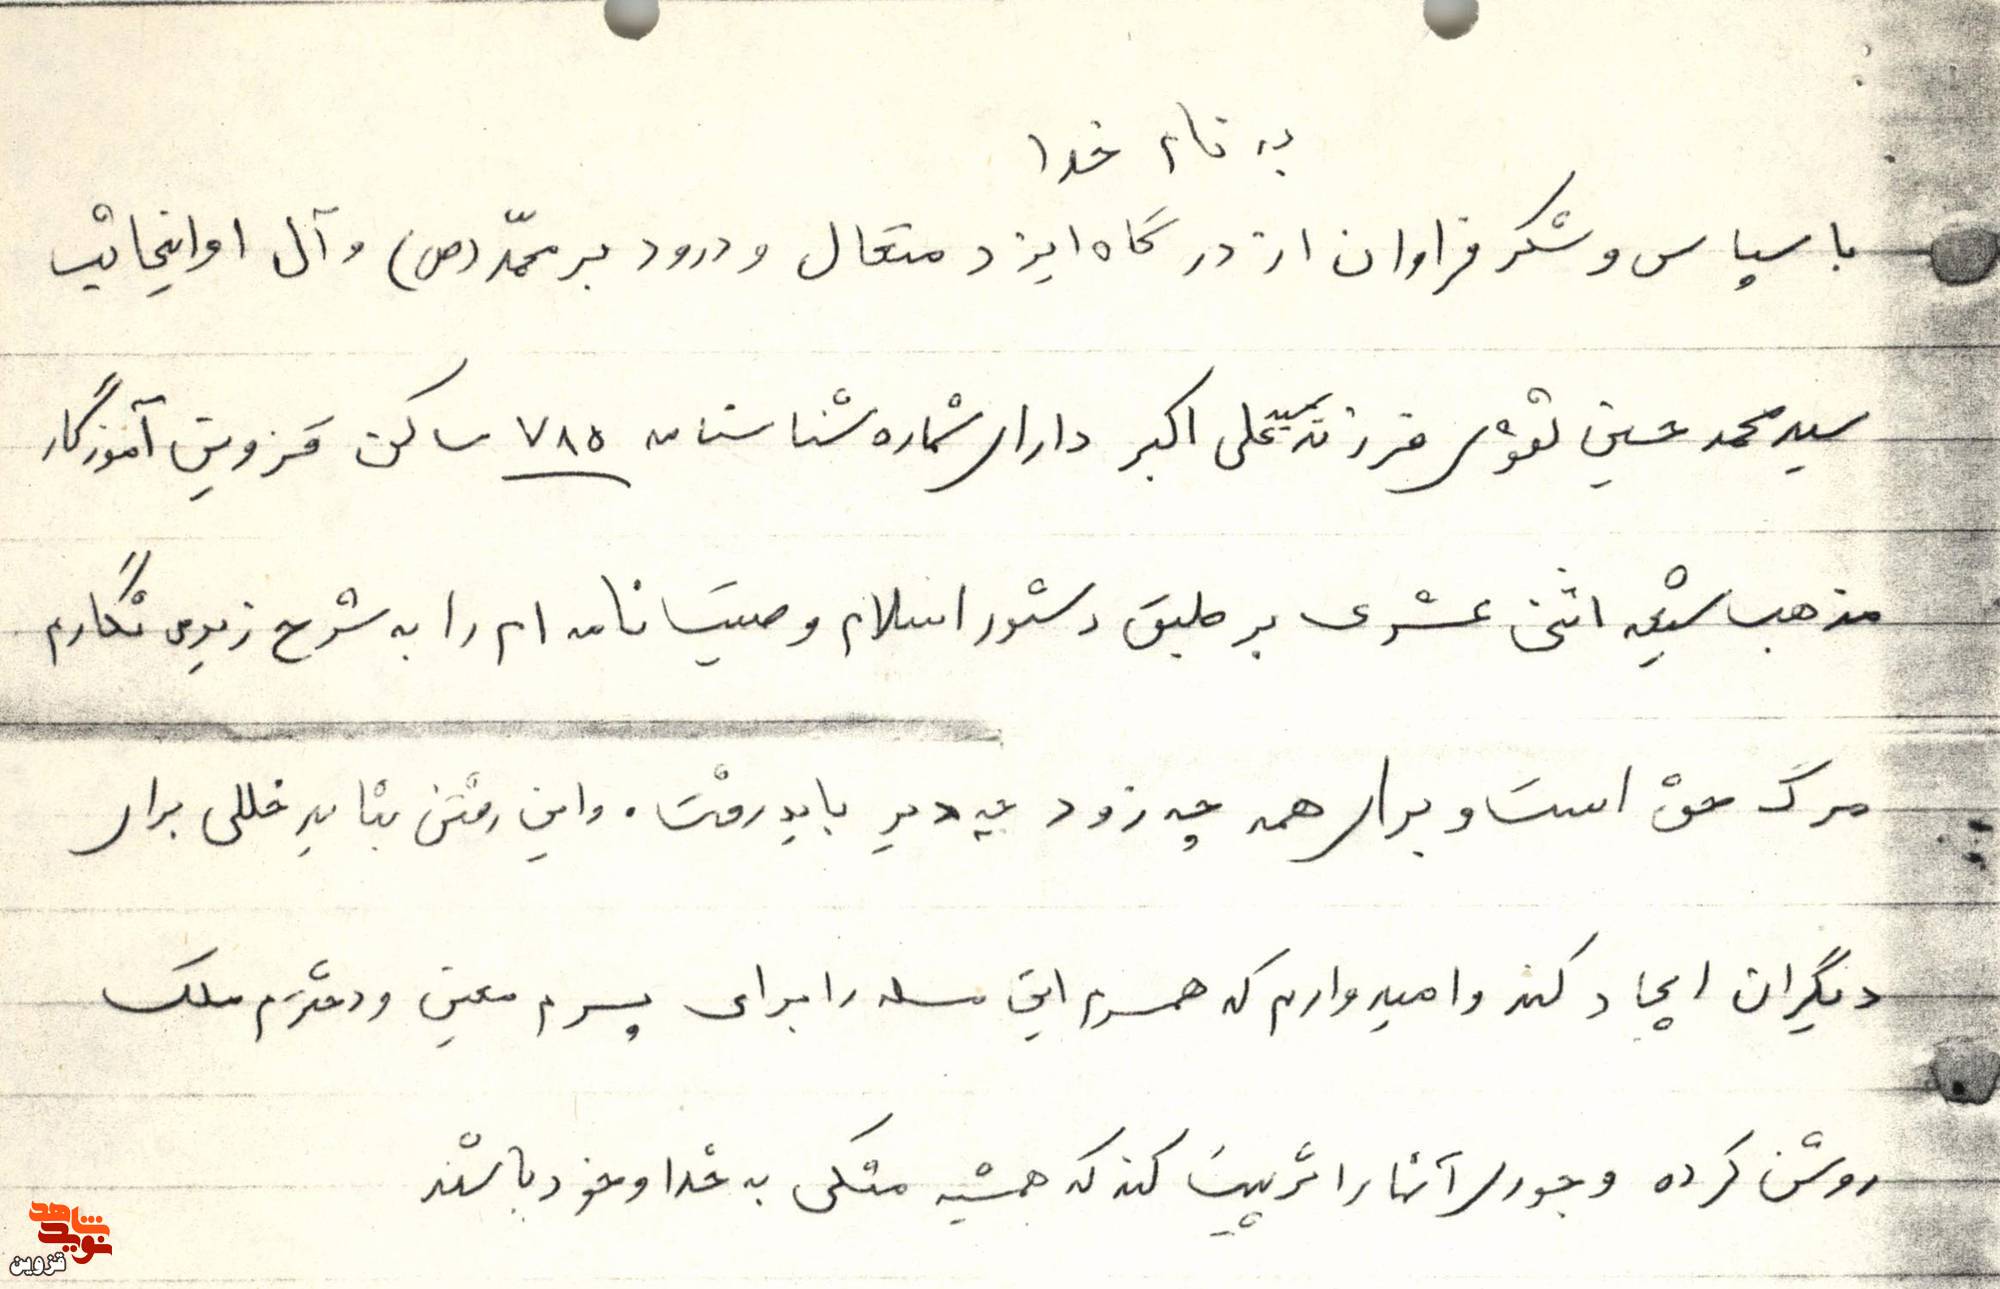 به نام خدا
با سپاس و شکر فراوان از درگاه ایزد متعال و درود بر محمّد (ص) و آل او اینجانب
سید محمد حسین تقوی فرزند سید علی اکبر دارای شماره شناسنامه ۷۸۵ ساکن قزوین آموزگار
مذهب شیعه اثنی عشری بر طبق دستور اسلام وصیت نامه ام را به شرح زیر می نگارم
مرگ حق است و برای همه چه زود چه دیر باید رفت. و این رفتن نباید خللی برای
دیگران ایجاد کند و امیدوارم که همسرم این مسله را برای پسرم معین و دخترم ملک
روشن کرده و جوری آنها را تربیت کند که همیشه متکی به خدا و خود باشند
نوید شاهد
قزوین